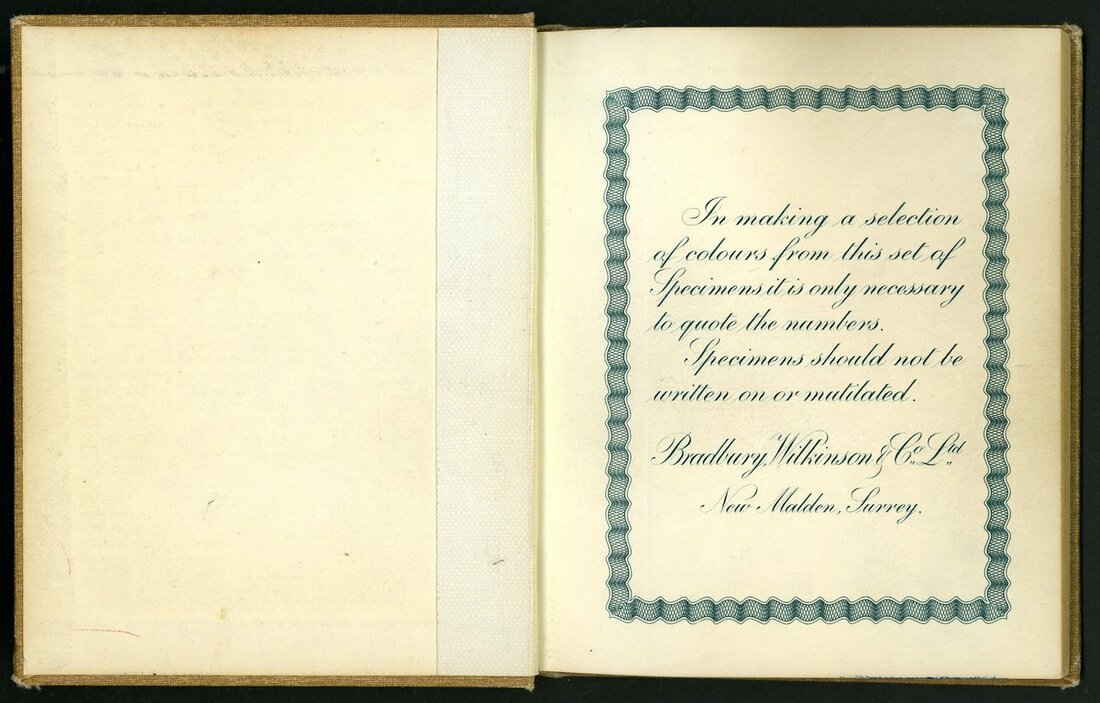 In making a selection
of colours from this set of
Specimens, it is only necessary
to quote the numbers.
Specimens should not be
written on or mutilated.
Bradbury, Wilkinson & Co. Ltd.
New Malden, Surrey.